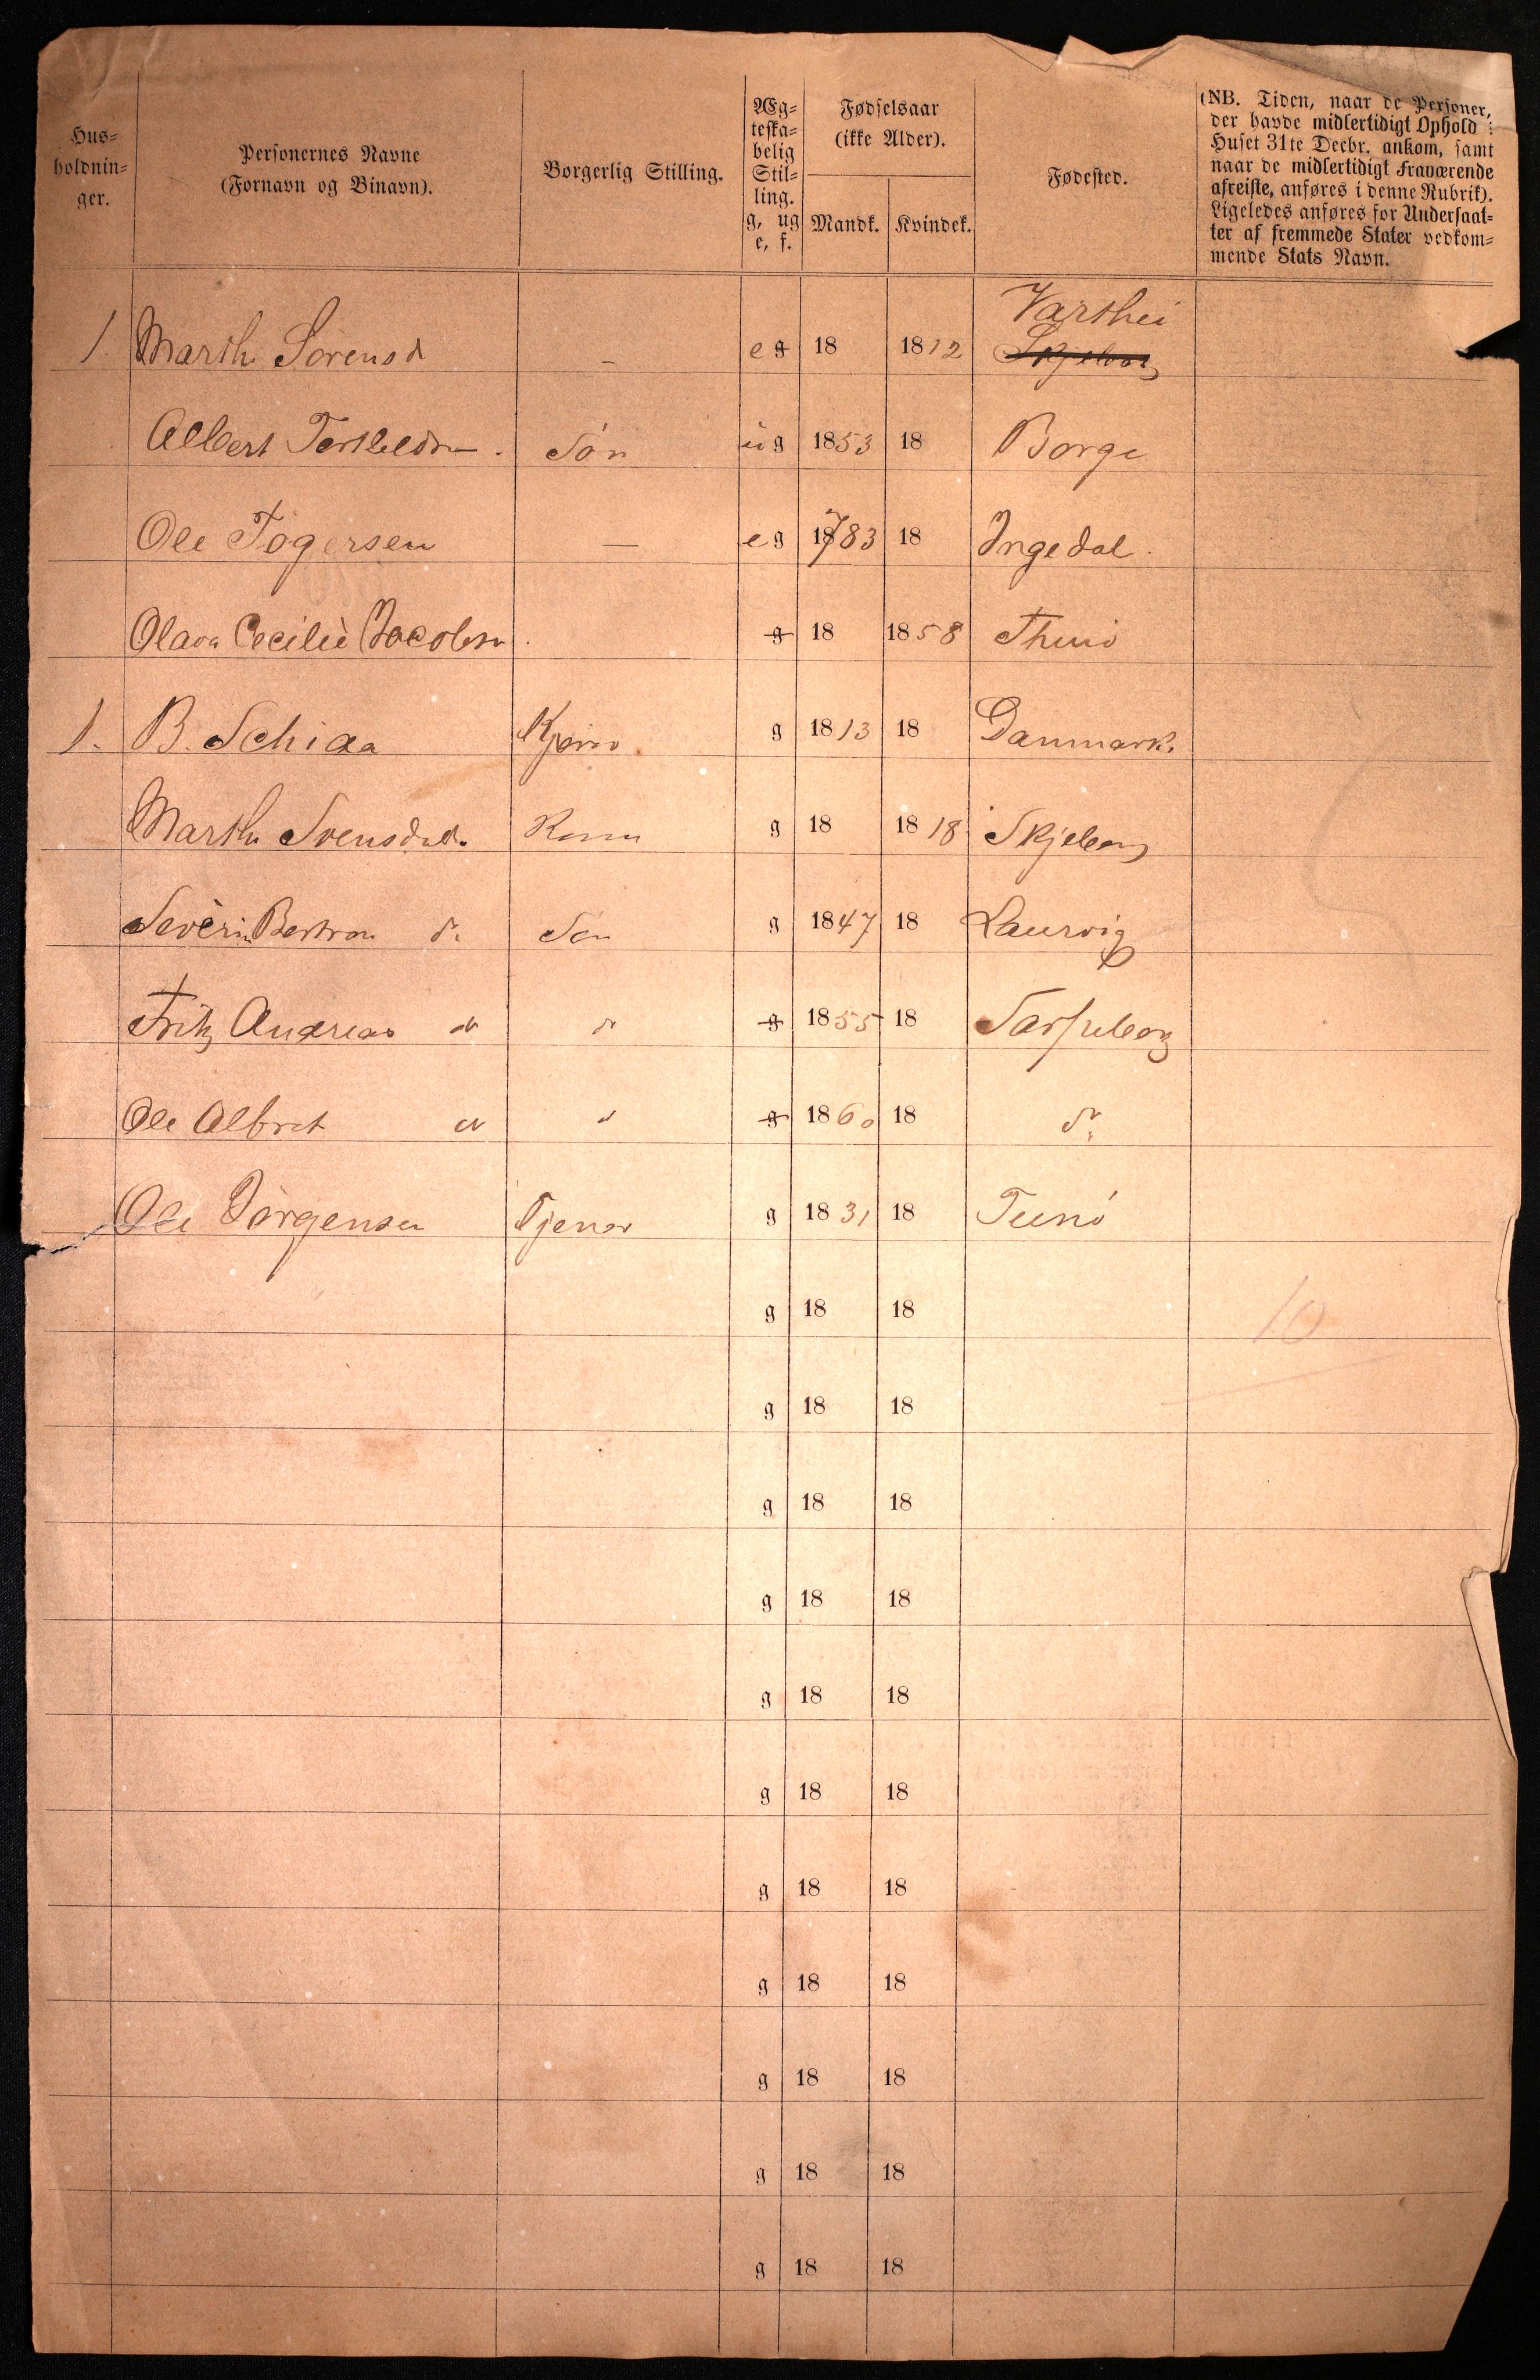 Hus-
holdnin-
ger.
Personernes Navne
(Fornavn og Binavn).
Borgerlig Stilling.
Æg-
teska-
belig
Stil-
ling.
g, ug
e, f.
Fødselsaar
(ikke Alder).
Mandk. Kvindek.
Fødested.
(NB. Tiden, naar de Personer,
der havde midlertidigt Ophold i
Huset 31te Decbr. ankom, samt
naar de midlertidigt Fraværende
afreiste, anføres i denne Rubrik).
Ligeledes anføres for Undersaat-
ter af fremmede Stater vedkom-
mende Stats Navn.
Varthei
1. Marthe Sorensd - e g 18 1812 Skjeberg
Albert Torkeldsen. Søn u g 1853 18 Borge
Ole Togersen — e g 1783 18 Ingedal.
Olava Cecilie Jacobsn. g 18 1858 Thunø
1. B. Schiaa g 1813 18 Danmark.
Marthe Svensdat. Kone g 18 1818 Skjeberg
Severin Bertran do Søn g 1847 18 Laurvig
Fritz Andreas do do g 1855 18 Sarpsborg
Ole Albret do do g 1860 18 do
Ole Jörgensen Tjener g 1831 18 Tunø
g 18 18
10
g 18 18
g 18 18
g 18 18
g 18 18
g 18 18
g 18 18
g 18 18
g 18 18
g 18 18
g 18 18